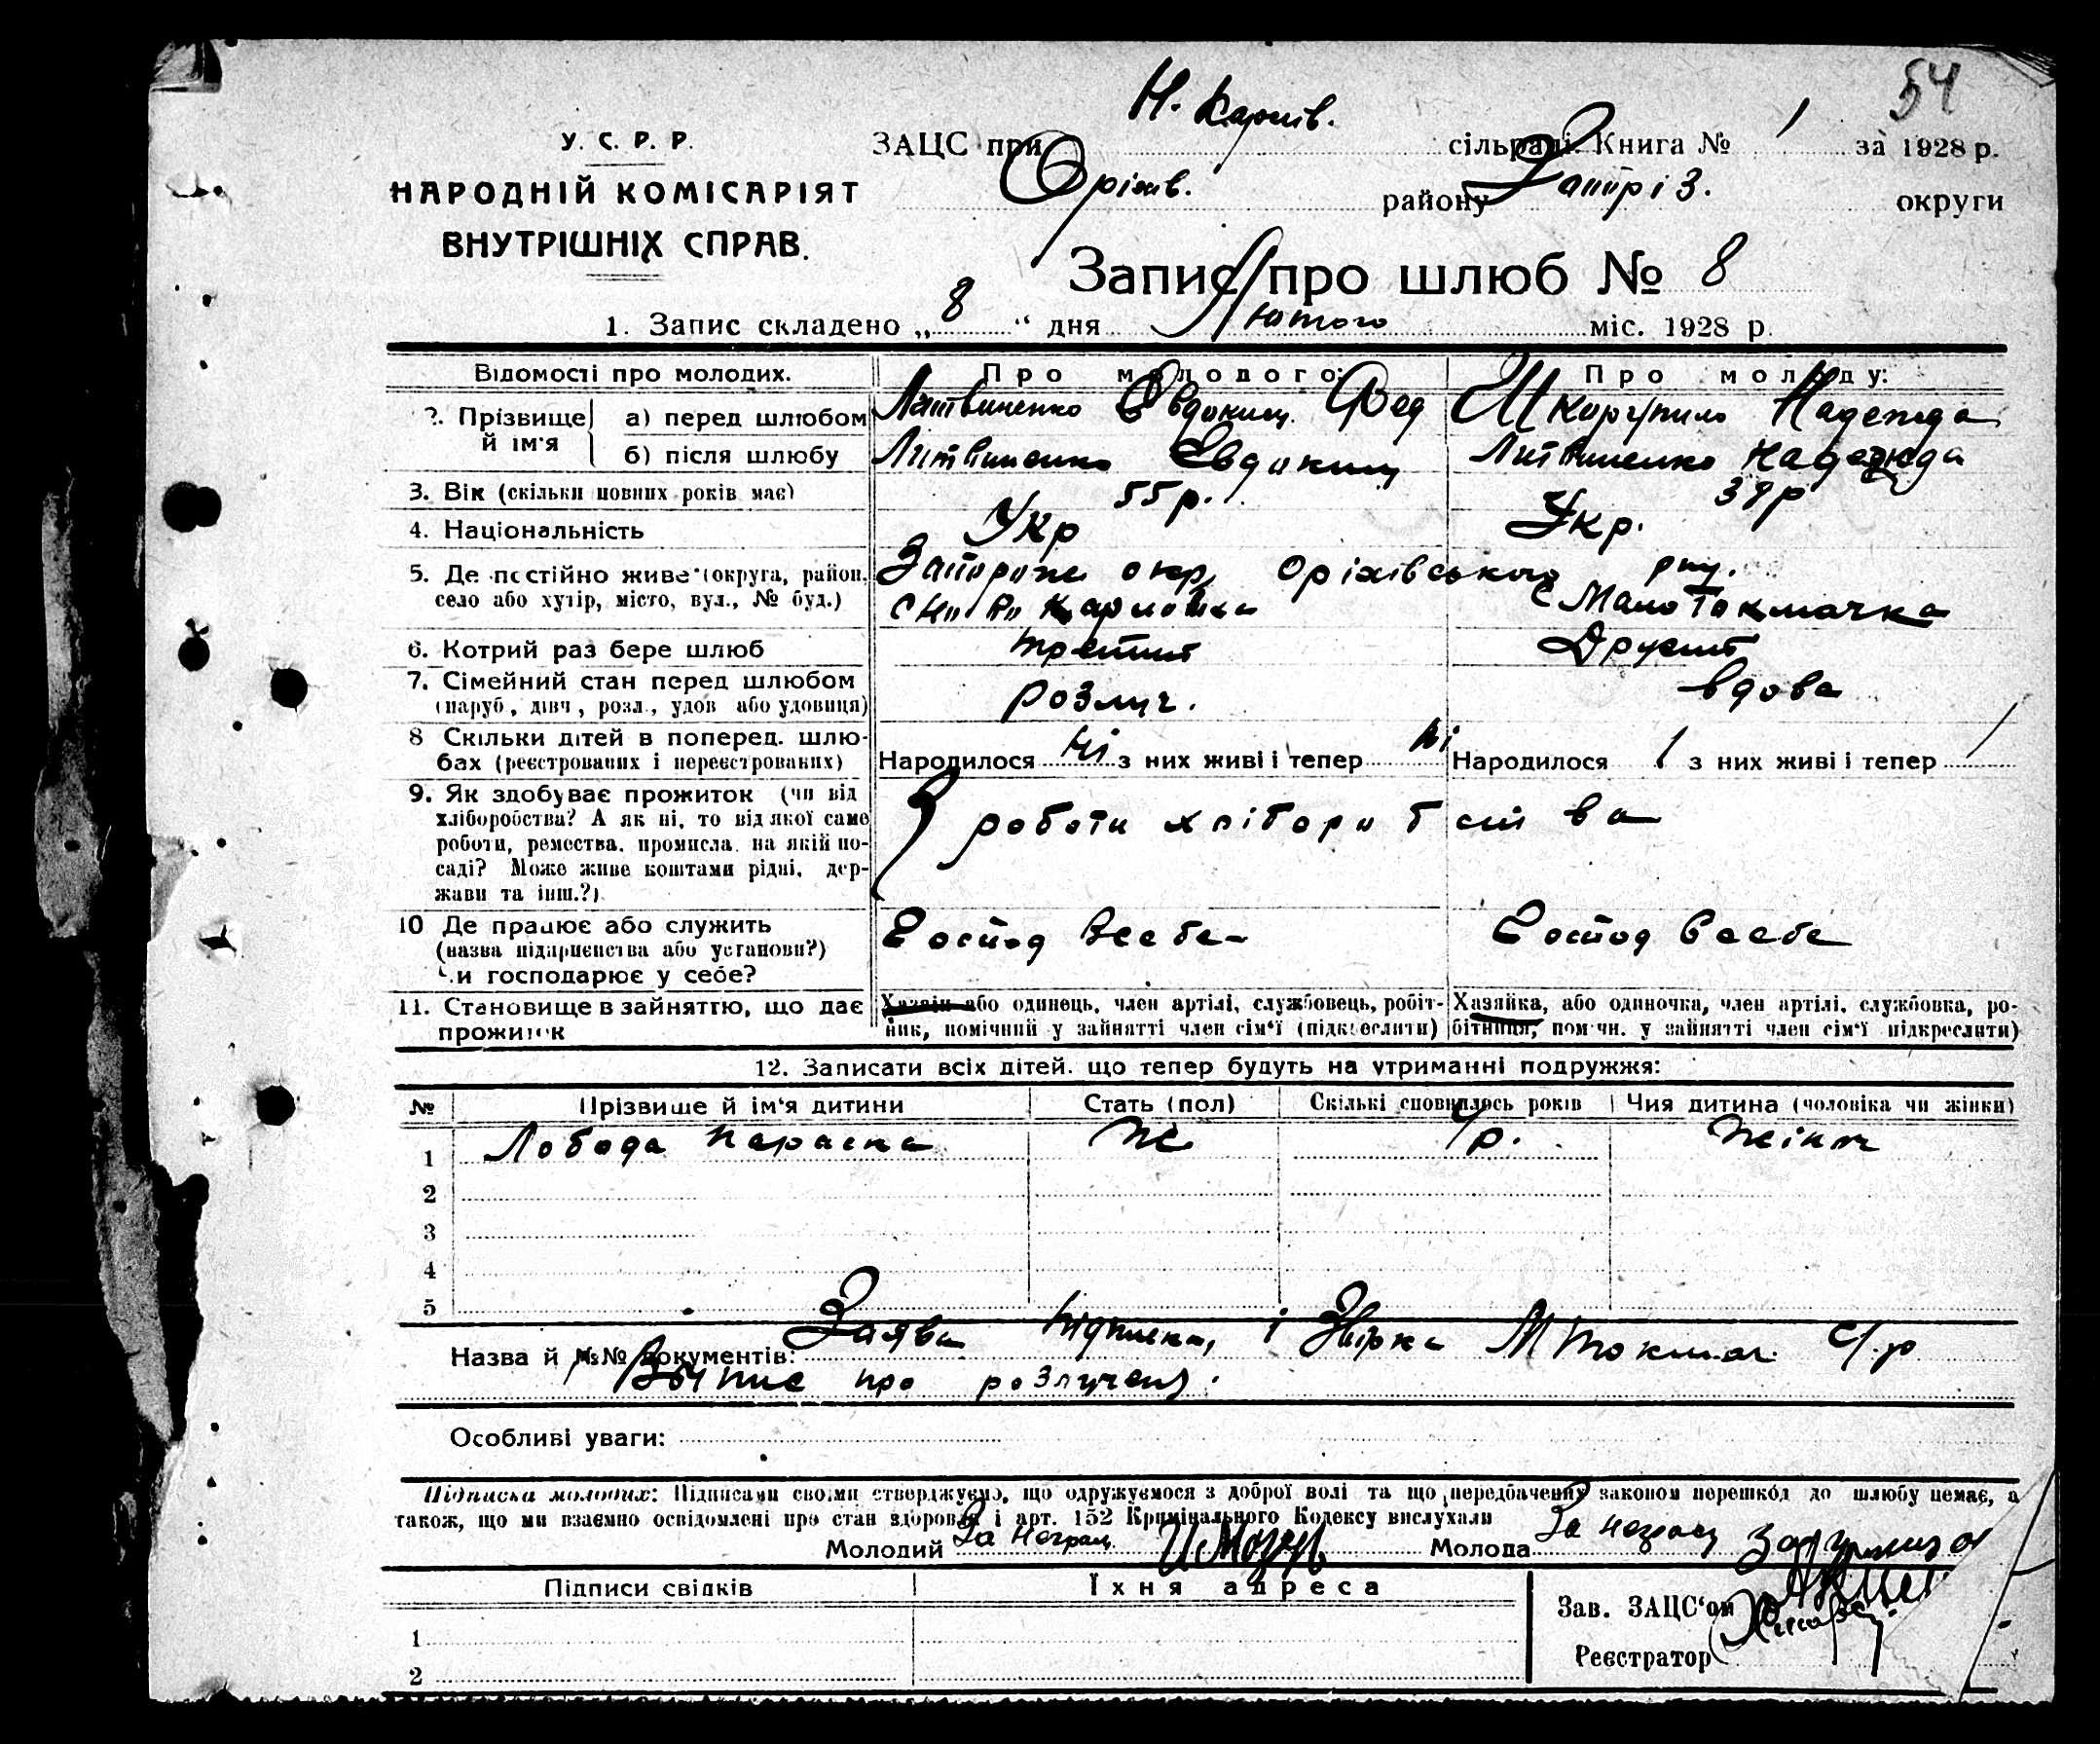 54
Н. Карлів.
У. С. Р. Р.
ЗАЦС при сільраді. Книга № 1 за 1928 р.
НАРОДНІЙ КОМІСАРІЯТ
ВНУТРІШНІХ СПРАВ.
Оріхів. району Запоріз. округи
Запис про шлюб № 8
1. Запис складено „ 8 “ дня Лютого міс. 1928 р.
Відомості про молодих. Про молодого: Про молоду:
2. Прізвище й ім'я
а) перед шлюбом Литвиненко Евдоким Фед Шкорупило Надежда
б) після шлюбу Литвиненко Евдоким Литвиненко Надежда
3. Вік (скільки повних років має) 55 р. 39 р
4. Національність Укр Укр.
5. Де постійно живе (округа, район, Запорож окр, Оріхівського рну.
село або хутір, місто, вул., № буд.) с Ново Карловка с Мало Токмачка
6. Котрий раз бере шлюб третий Другий
7. Сімейний стан перед шлюбом розлуч. вдова
(паруб., дівч., розл., удов. або удовиця)
8 Скільки дітей в поперед. шлю-
бах (реєстрованих і нереєстрованих) Народилося ні з них живі і тепер ні Народилося 1 з них живі і тепер 1
9. Як здобуває прожиток (чи від
хліборобства? А як ні, то від якої саме
роботи, ремества, промисла, на якій по-
саді? Може живе коштами рідні, дер-
жави та інш.?)
З роботи хліборобства
10 Де працює або служить Господ в себе Господ в себе
(назва підприємства або установи?)
Чи господарює у себе?
11. Становище в зайняттю, що дає Хазяїн або одинець, член артілі, службовець, робіт- Хазяйка, або одиночка, член артілі, службовка, ро-
прожиток ник, помічний у зайнятті член сім'ї (підкреслити) бітниця, помічн. у зайнятті член сім'ї підкреслити)
12. Записати всіх дітей, що тепер будуть на утриманні подружжя:
№ Прізвище й ім'я дитини Стать (пол) Скількі сповнилось років Чия дитина (чоловіка чи жінки)
1 Лобода Параска Ж р. Жінки
2
3
4
5
Заява підписка, і Звірка М Токмач. С/р
Назва й №№ документів:
Випис про розлучен.
Особливі уваги:
Підписка молодих: Підписами своїми стверджуємо, що одружуємося з доброї волі та що передбачених законом перешкод до шлюбу немає, а
також, що ми взаємно освідомлені про стан здоровля і арт. 152 Кримінального Кодексу вислухали
Молодий За неграм Молода За неграм
Підписи свідків Їхня адреса
Зав. ЗАЦС'ом
1
Реєстратор
2